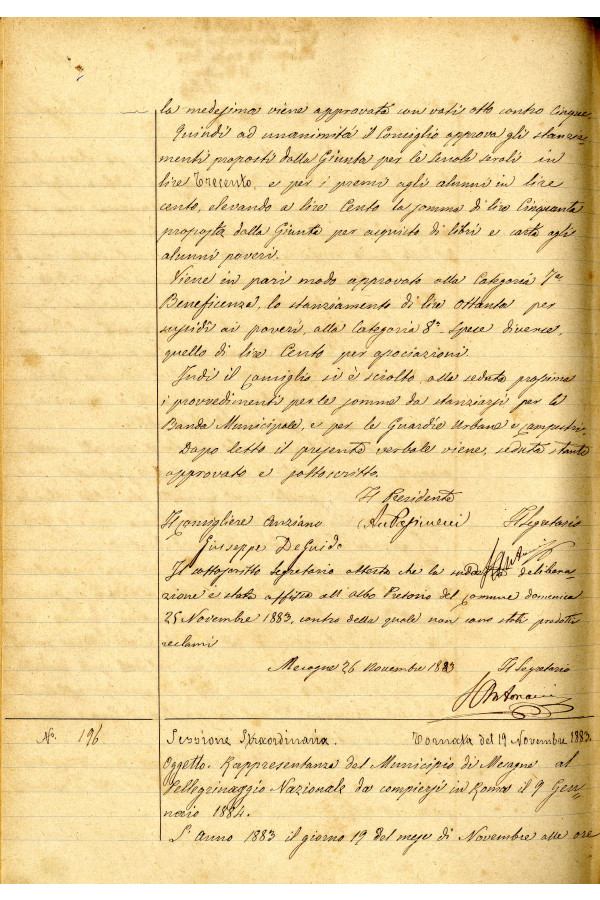 la medesima viene approvata con voti otto contro cinque.
Quindi ad unanimità il Consiglio approva gli stanzia-
menti proposti dalla Giunta per le scuole serali in
lire Trecento, e per i premi agli alunni in lire
cento, elevando a lire Cento la somma di lire Cinquanta
proposta dalla Giunta per acquisto di libri e carta agli
alunni poveri.
Viene in pari modo approvato alla Categoria 7ª
Beneficenza, lo stanziamento di lire Ottanta per
sussidii ai poveri, alla Categoria 8ª Spese diverse,
quello di lire Cento per associazioni.
Indi il Consiglio si è sciolto, alla seduta prossima
i provvedimenti per le somme da stanziarsi per la
Banda Municipale, e per le Guardie Urbane e campestri.
Dopo letto il presente verbale viene, seduta stante
approvato e sottoscritto.
Il Presidente
Il Consigliere Anziano Il Segretario
Giuseppe DeGuido
Il sottoscritto Segretario attesta che la delibera-
zione è stata affissa all'albo Pretorio del Comune domenica
25 Novembre 1883, contro della quale non sono stati prodotti
reclami
Mesagne 26 Novembre 1883 Il Segretario
Nº. 196 Sessione Straordinaria. Tornata del 19 Novembre 1883.
Oggetto. Rappresentanza del Municipio di Mesagne al
Pellegrinaggio Nazionale da compiersi in Roma il 9 Gen-
naio 1884.
L'Anno 1883 il giorno 19 del mese di Novembre alle ore